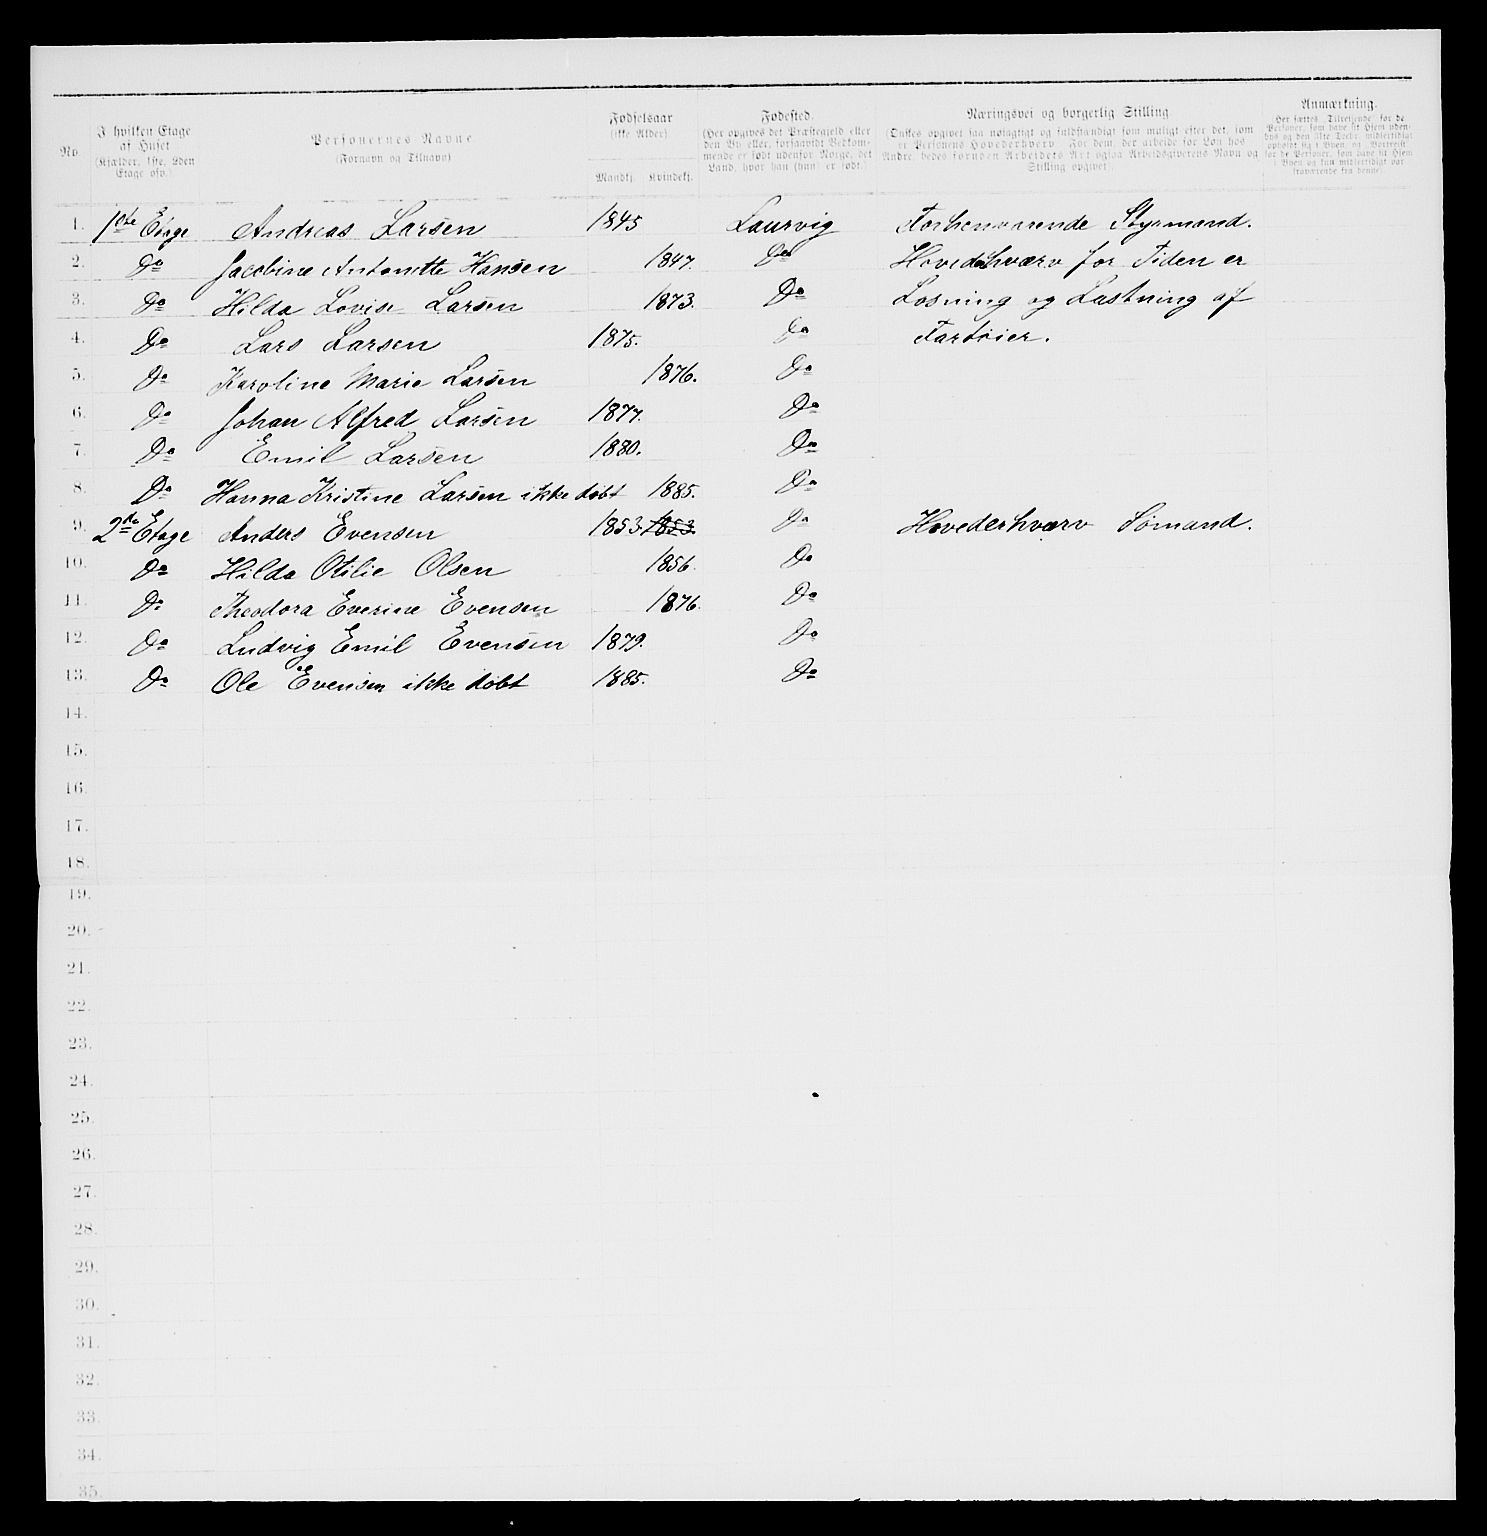 No.
I hvilken Etage
af Huset
(Kjælder, 1ste, 2den
Etage osv.).
Personernes Navne
(Fornavn og Tilnavn)
Fødselsaar
(ikke Alder)
Mandkj. Kvindekj.
Fødested.
(Her opgives det Præstegjeld eller
den By eller, forsaavidt Vedkom-
mende er født udenfor Norge, det
Land, hvor han (hun) er født.)
Næringsvei og borgerlig Stilling
(Ønskes opgivet saa nøiagtigt og fuldstændigt som muligt efter det, som
er Personens Hovederhverv. For dem, der arbeide for Løn hos
Andre, bedes foruden Arbeidets Art ogsaa Arbeidsgiverens Navn og
Stilling opgivet).
Anmærkning.
Her sættes „Tilreisende“ for de
Personer, som have sit Hjem uden-
bys og den 31te Decbr. midlertidigt
opholdt sig i Byen, og „Bortreist“
for de Personer, som have sit Hjem
i Byen og kun midlertidigt var
fraværende fra denne).
1. 1ste Etage Andreas Larsen 1845 Laurvig Forhenvarende Styrmand.
2. Do Jacobine Antonette Hansen 1847. Do Hovederhværv for Tiden er
3. Do Hilda Lovise Larsen 1873. Do Losning og Lastning af
4. Do Lars Larsen 1875. Do Fartøier.
5. Do Karoline Marie Larsen 1876. Do
6. Do Johan Alfred Larsen 1877. Do
7. Do Emil Larsen 1880. Do
8. Do Hanna Kristine Larsen ikke døbt 1885. Do
9. 2de Etage Anders Evensen 1853. 1853. Do Hovederhværv Sømand.
10. Do Hilda Otilie Olsen 1856. Do
11. Do Theodora Everine Evensen 1876. Do
12. Do Ludvig Emil Evensen 1879. Do
13. Do Ole Evensen ikke døbt 1885. Do
14.
15.
16.
17.
18.
19.
20.
21.
22.
23.
24.
25.
26.
27.
28.
29.
30.
31.
32.
33.
34.
35.